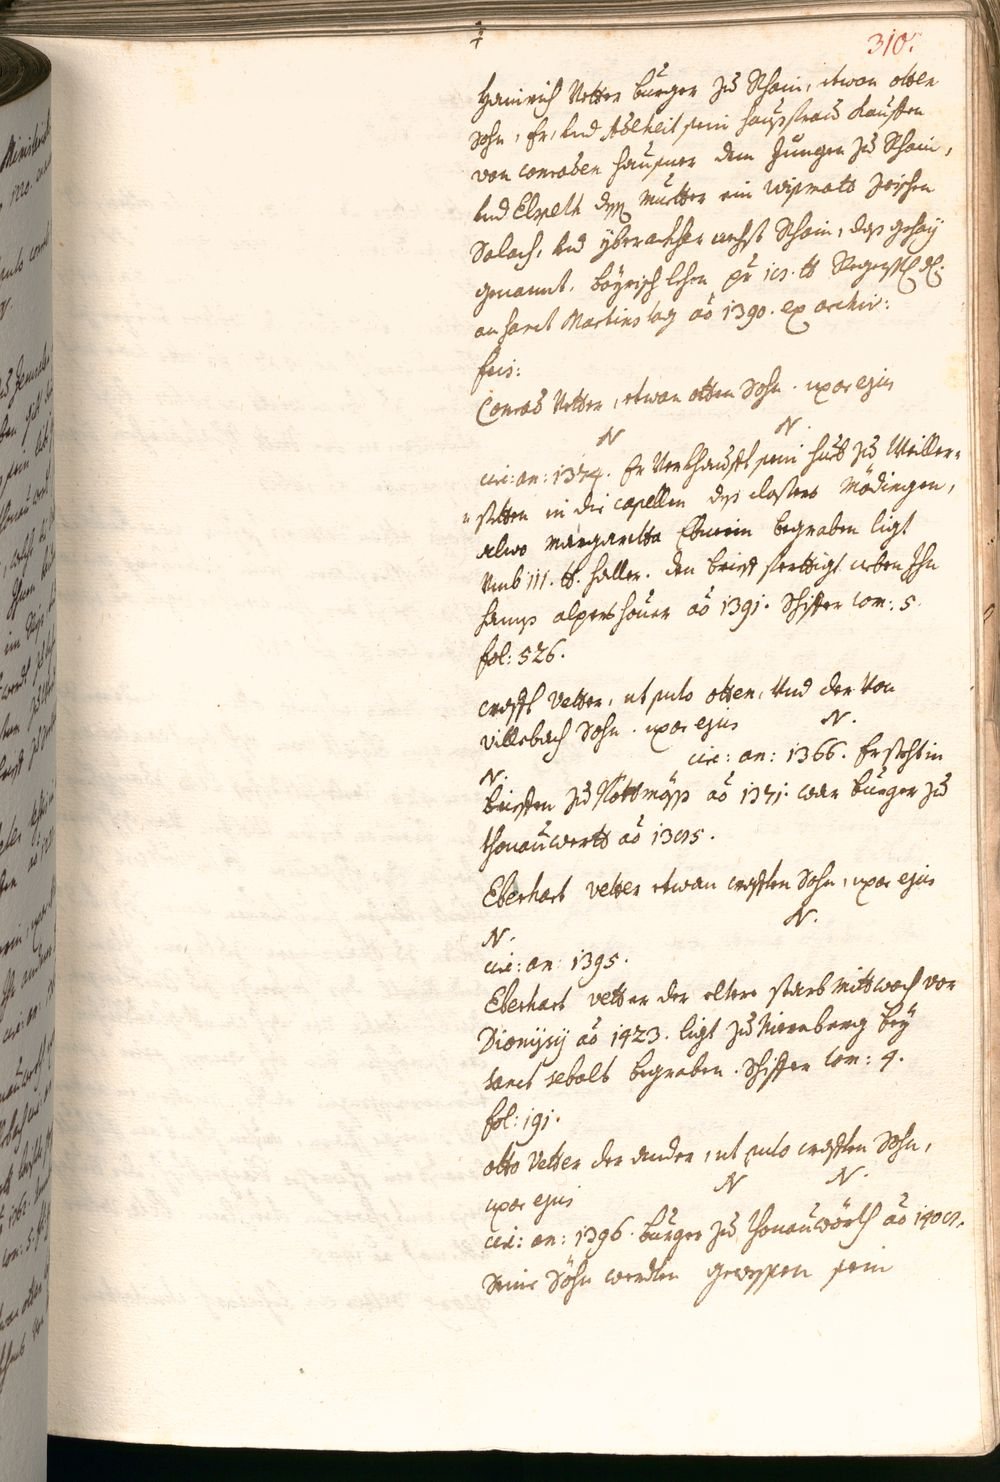 310.
Hainrich Vetter burger zu Rhain, etwan otten
Sohn, Er, und Adelheit sein haußfrau kaufften
von Conraden haußner dem Jungen zu Rhain,
und Elspeth dess Muetter ein wismatt zwischen
Salach, und yberackher negst Rhain, das gehay
genannt. bayrisch lehen
an sanct Martins tag ao 1390. ex archiv:
fris:
Conrad Vetter, etwan otten Sohn. uxor ejus
N N.
circ: an: 1374. Er Verkhaufft sein hub zu Weiller-
stetten in die capellen des closters Mödingen,
alwo Margaretta begraben ligt
Umb 111. lb. haller. den brieff ferttigt neben Ihn
hanns alpershouer ao 1391. Schiffer tom: 5.
fol: 526.
crafft Vetter, ut puto otten, Und der Von
Villebach Sohn. uxor ejus N.
N. circ: an: 1366. Er steht in
brieffen zu ao 1371. war burger zu
thonauwertt ao 13
Eberhart vetter etwan crafften Sohn, uxor ejus
N. N.
circ: an: 1395.
Eberhart vetter der eltere starb Mittwoch vor
Dionijsij ao 1423. ligt zu Nirenberg beÿ
sanct sebalt begraben. Schiffer tom: 4.
fol: 191.
otto Vetter der ander, ut puto crafften Sohn,
uxor ejus N N.
circ: an: 1396. burger zu thonauwörth ao
Seine Söhn werdten gewessen sein